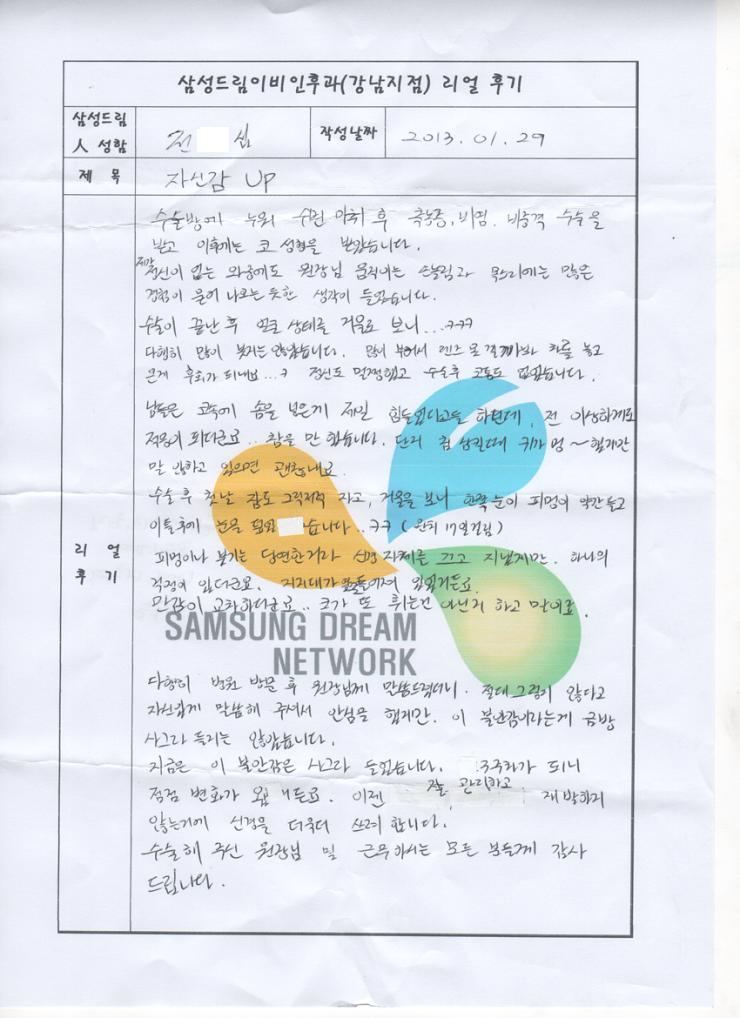 삼성드림이비인후과(강남지점) 리얼 후기
삼성드림
人 성함
전 심
작성날짜
2013. 01. 29
제 목
자신감 UP
리 얼
후 기
수술방에 누워 수면 마취 후 축농증, 비염, 비중격 수술을
받고 이후에는 코 성형을 받았습니다.
정신이 없는 와중에도 원장님 움직이는 손놀림과 목소리에는 많은
경험이 묻어 나오는 듯한 생각이 들었습니다.
수술이 끝난 후 얼굴 상태를 거울로 보니...ㅋㅋㅋ
다행히 많이 붓지는 않았습니다. 많이 부어서 렌즈 못 낄까봐 차를 놓고
온게 후회가 되네요...ㅋ 정신도 멀쩡했고 수술후 고통도 없었습니다.
남들은 코속에 솜을 넣은게 제일 힘들었다고들 하던데, 전 이상하게도
적응이 되더군요... 참을 만 했습니다. 단지 침 삼킬때 귀가 멍~했지만
말 안하고 있으면 괜찮네요.
수술 후 첫날 잠도 그럭저럭 자고, 거울을 보니 한쪽 눈이 피멍이 약간 들고
이틀후에 눈을 습니다..ㅋㅋ (완치 17일걸림)
피멍이나 붓기는 당연한거라 신경 자체를 끄고 지냈지만. 하나의
걱정이 있더군요. 지지대가 있었거든요.
만감이 교차하더군요.. 코가 또 휘는건 아닌지 하고 말이죠.
SAMSUNG DREAM
NETWORK
다행히 병원 방문 후 원장님께 말씀드렸더니. 절대 그렇지 않다고
자신있게 말씀해 주셔서 안심을 했지만. 이 불안감이라는게 금방
사그라 들지는 않았습니다.
지금은 이 불안감은 사그라 들었습니다. 3주차가 되니
점점 변화가 있거든요. 이젠 잘 관리하고 재발하지
않는거에 신경을 더욱더 쓰려 합니다.
수술해 주신 원장님 및 근무하시는 모든 분들께 감사
드립니다.